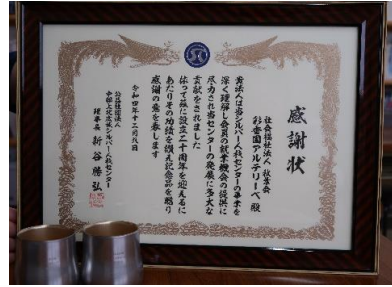 感謝状
社会福祉法人 秋葉会
彩香園アルテリーベ 殿
貴法人は当シルバー人材センターの事業を
深く理解し会員の就業機会の提供に
尽力され当センターの発展に多大な
貢献をされました
依って茲に設立二十周年を迎えるに
あたりその功績を讃え記念品を贈り
感謝の意を表します
令和四年十二月九日
公益社団法人
シルバー人材センター
理事長 新谷勝弘